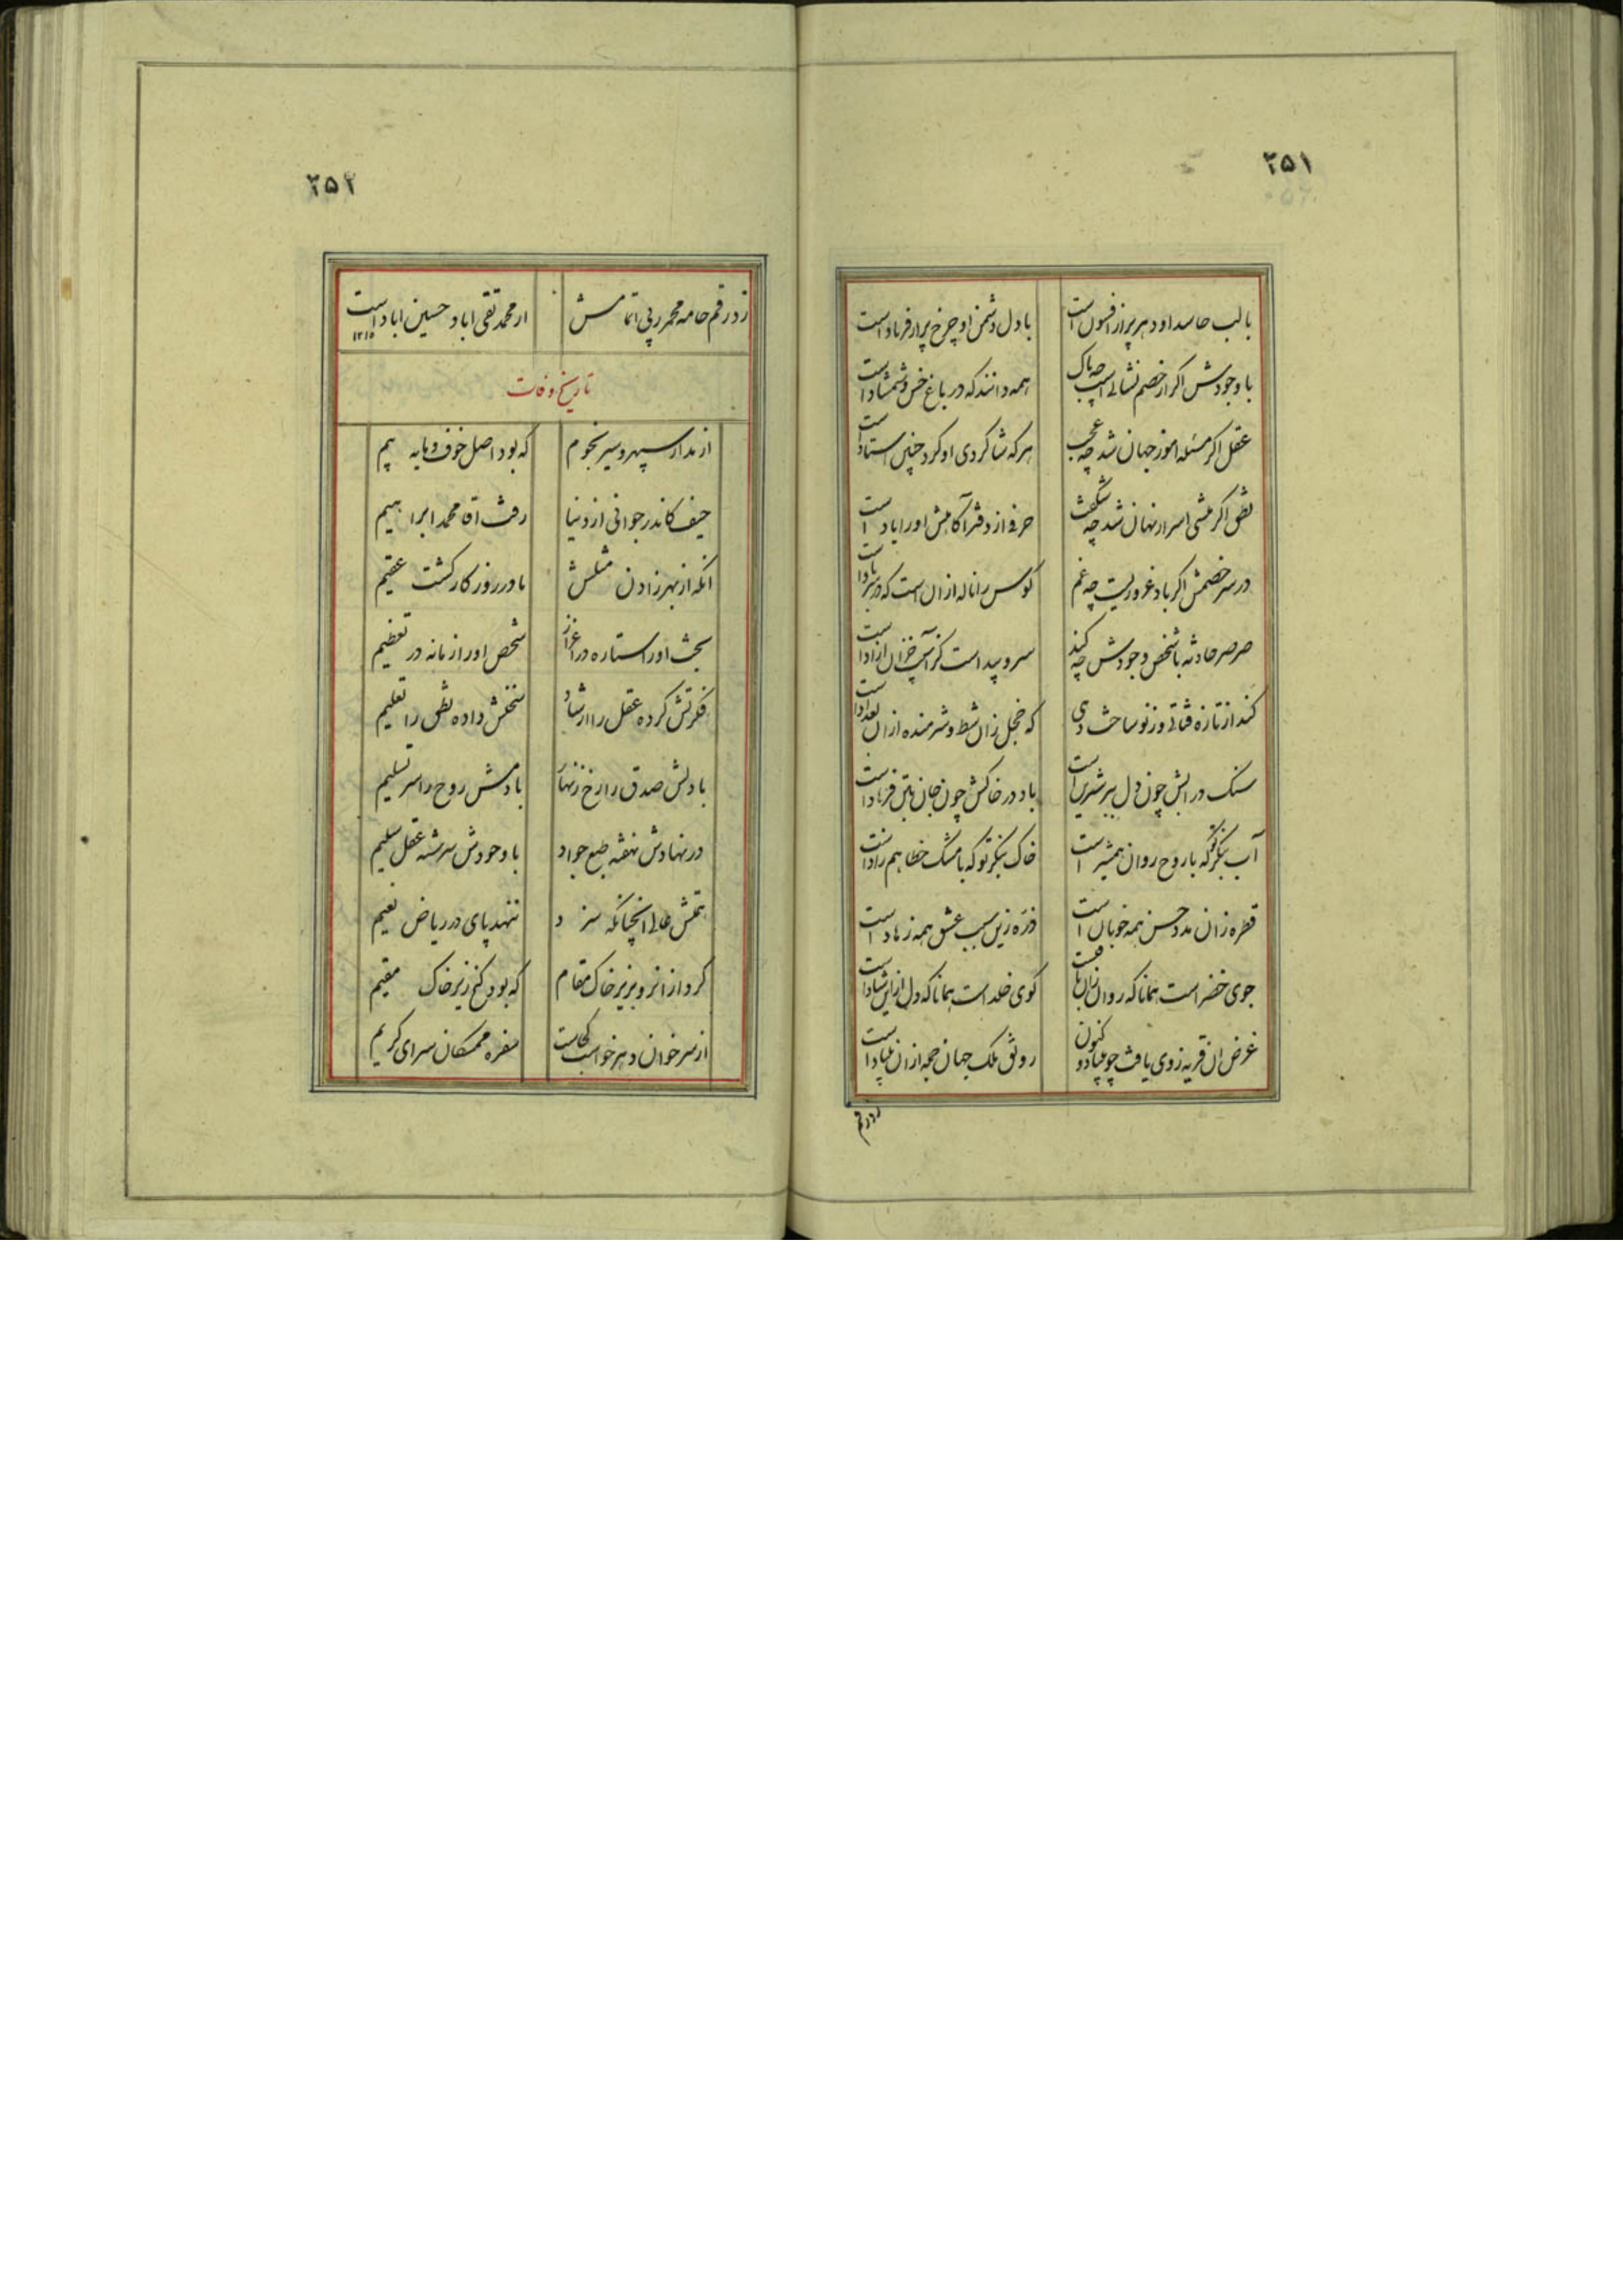 ۲۵۱
با لب حاسد او دهر پر از افسون است
با دل دشمن او چرخ پر از فریاد است
با وجودش اگر از خصم نشانی است چه باک
همه دانند که در باغ خس و شمشاد است
عقل اگر مسئله اموز جهان شد چه عجب
هر که شاکردی او کرد چنین استاد است
نطق اگر منشی اسرار نهان شد چه شگفت
حرفی از دفتر آگاهیش او را یاد است
در سر خصمش اگر باد غروریست چه غم
کوس را ناله از ان است که در سر باد است
صرصر حادثه با شخص وجودش چه کند
سرو پیداست کز آسیب خزان ازاد است
کند از تازه قناتی و ز نو ساخت دهی
که خجل زان شط و شرمنده از ان بغداد است
سنک در ابش چون دل بر شیرین است
باد در خاکش چون جان بتن فرهاد است
آب بنگر تو که با روح روان همشیر است
خاک بنگر تو که با مشک خطا همزاد است
قطره زان مدد حسن همه خوبان است
ذره زین سبب عشق همه زهاد است
جوی خضر است همانا که روان زان بقاست
کوی خلد است همانا که دل از این شاد است
غرض ان قریه ز وی یافت چو بنیاد و کنون
رونق ملک جهان جمله از ان بنیاد است
زد رقم
۲۵۲
زد رقم خامه محمر پی اتمامش
از محمد تقی اباد حسین اباد است
۱۲۱۵
تاریخ وفات
از مدار سپهر و سیر نجوم
که بود اصل خوف و مایه بیم
حیف کاندر جوانی از دنیا
رفت اقا محمد ابراهیم
انکه از بهر زادن مثلش
مادر روزکار کشت عقیم
بخت او را ستاره در اعزاز
شخص او را زمانه در تعظیم
فکرتش کرده عقل را ارشاد
سخنش داده نطق را تعلیم
با دلش صدق را رخ زنهار
با دمش روح را سر تسلیم
در نهادش نهفته طبع جواد
با وجودش سرشته عقل سلیم
همتش عالی انچنانکه سزد
ننهد پای در ریاض نعیم
کرد از انرو بزیر خاک مقام
که بود کنج زیر خاک مقیم
از سر خوان دهر خواست کجاست
سفره ممسکان سرای کریم